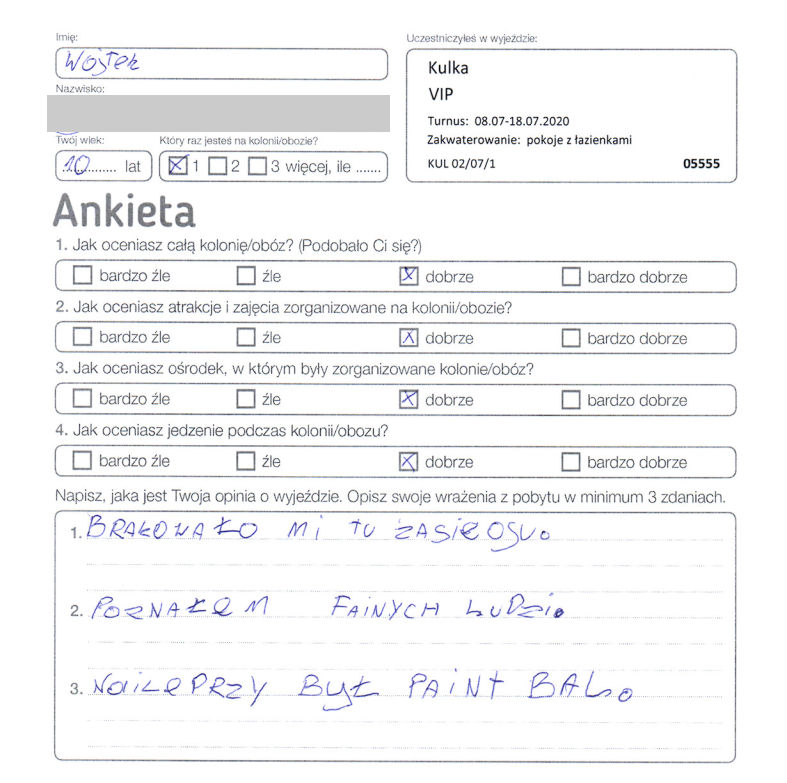 Imię:
Wojtek
Nazwisko:
Twój wiek:
10 lat
Który raz jesteś na kolonii/obozie?
1 2 3 więcej, ile .......
Uczestniczyłeś w wyjeździe:
Kulka
VIP
Turnus: 08.07-18.07.2020
Zakwaterowanie: pokoje z łazienkami
KUL 02/07/1 05555
Ankieta
1. Jak oceniasz całą kolonię/obóz? (Podobało Ci się?)
bardzo źle źle dobrze bardzo dobrze
2. Jak oceniasz atrakcje i zajęcia zorganizowane na kolonii/obozie?
bardzo źle źle dobrze bardzo dobrze
3. Jak oceniasz ośrodek, w którym były zorganizowane kolonie/obóz?
bardzo źle źle dobrze bardzo dobrze
4. Jak oceniasz jedzenie podczas kolonii/obozu?
bardzo źle źle dobrze bardzo dobrze
Napisz, jaka jest Twoja opinia o wyjeździe. Opisz swoje wrażenia z pobytu w minimum 3 zdaniach.
1. BRAKOWAŁO Mi tu ZASięgu.
2. POZNAŁEM FAiNYCH LuDzi.
3. NAiLEPRZY BYŁ PAiNT BALL.